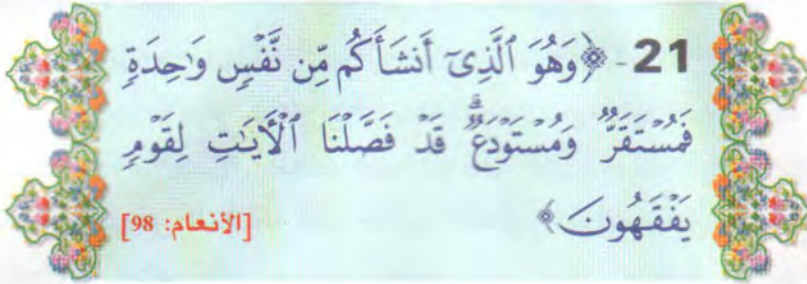 21- ﴿وَهُوَ ٱلَّذِىٓ أَنشَأَكُم مِّن نَّفۡسٍ وَٰحِدَةٍ
فَمُسۡتَقَرٌّ وَمُسۡتَوۡدَعٌۗ قَدۡ فَصَّلۡنَا ٱلۡأٓيَٰتِ لِقَوۡمٍ
يَفۡقَهُونَ﴾ [الأنعام: 98]